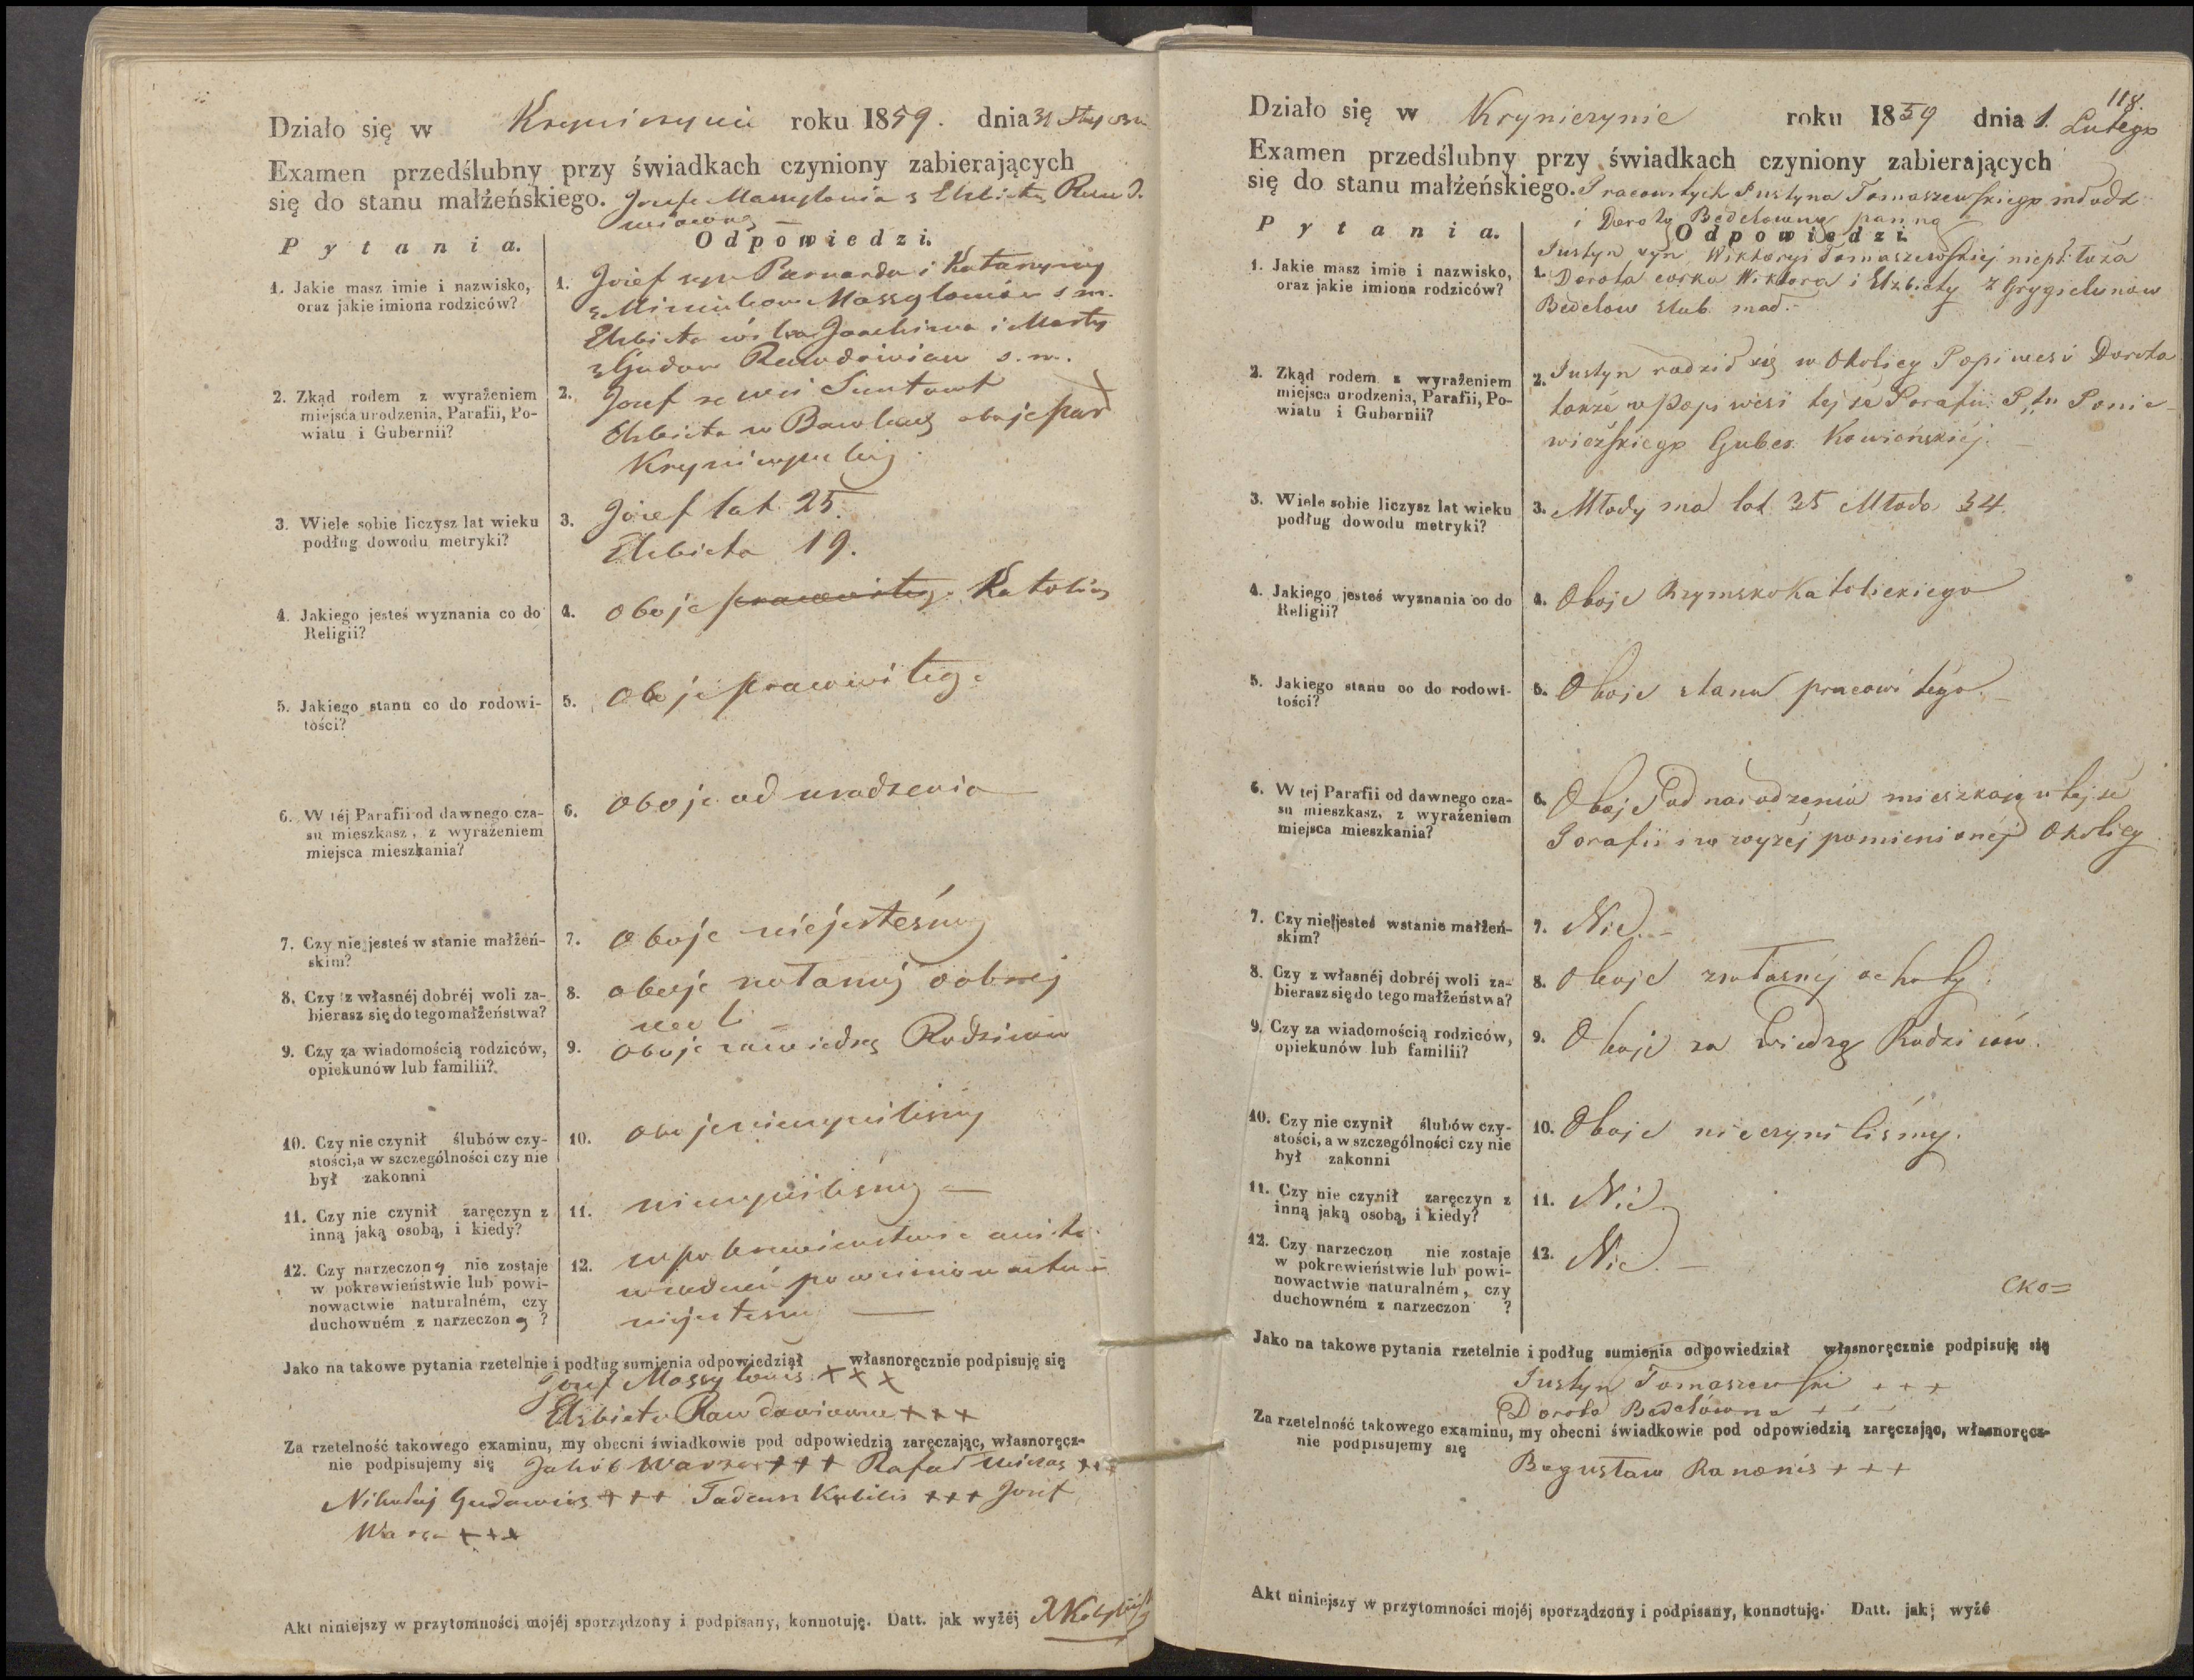 Działo się w Kryniczynie roku 1859. dnia 31 Stycznia
Examen przedślubny przy świadkach czyniony zabierających
się do stanu małżeńskiego. Jozefa Massylonia z Elzbietą
P y t a n i a.
O d p o w i e d z i.
1. Jakie masz imie i nazwisko,
oraz jakie imiona rodziców?
1. Józef syn Barnarda i Katarzyny
Massyloniów s m.
Elzbieta córka Joachima i Marty
s. m.
2. Zkąd rodem z wyrażeniem
miejsca urodzenia, Parafii, Po-
wiatu i Gubernii?
2. Jozef ze wsi
Elzbieta w oboje par
3. Wiele sobie liczysz lat wieku
podług dowodu metryki?
3. Józef lat 25.
Elzbieta 19.
4. Jakiego jesteś wyznania co do
Religii?
4. oboje Katolicy
5. Jakiego stanu co do rodowi-
tości?
5. oboje
6. W téj Parafii od dawnego cza-
su mieszkasz, z wyrażeniem
miejsca mieszkania?
6. oboje od urodzenia
7. Czy nie jesteś w stanie małżeń-
skim?
7. oboje niejesteśmy
8. Czy z własnéj dobréj woli za-
bierasz się do tego małżeństwa?
8. oboje dobrej
woli
9. Czy za wiadomością rodziców,
opiekunów lub familii?
9. oboje zawiedzą Rodziców
10. Czy nie czynił ślubów czy-
stości, a w szczególności czy nie
był zakonni
10. oboje nieczyniliśmy
11. Czy nie czynił zaręczyn z
inną jaką osobą, i kiedy?
11. nieczyniliśmy
12. Czy narzeczoną nie zostaje
w pokrewieństwie lub powi-
nowactwie naturalném, czy
duchowném z narzeczoną ?
12. w pokrewienstwie ani
niejestesmy
Jako na takowe pytania rzetelnie i podług sumienia odpowiedział własnoręcznie podpisuję się
Jozef Massylonis + + +
Elzbieta + + +
Za rzetelność takowego examinu, my obecni świadkowie pod odpowiedzią zaręczając, własnoręcz-
nie podpisujemy się Jakób + + + Rafał + +
Nikodaj Gudawicz + + + Tadeusz Kubilis + + + Jozef
+ + +
Akt niniejszy w przytomności mojéj sporządzony i podpisany, konnotuję. Datt. jak wyźéj
118.
Działo się w Kryniczynie roku 1859 dnia 1. Lutego
Examen przedślubny przy świadkach czyniony zabierających
się do stanu małżeńskiego. Pracowitych Justyna Tomaszewskiego młodz.
i Dorotę Bedelowną panną
P y t a n i a.
O d p o w i e d z i.
1. Jakie masz imie i nazwisko,
oraz jakie imiona rodziców?
1. Justyn syn Wiktoryi Tomaszewskiej niepr. łoża
Dorota corka Wiktora i Elzbiety z Grygielunow
Bedelow slub. mał.
2. Zkąd rodem z wyrażeniem
miejsca urodzenia, Parafii, Po-
wiatu i Gubernii?
2. Justyn rodził się w Okolicy Popiwesi Dorota
takze w Popiwesi tejze Parafii Ptu Ponie-
wiezskiego Guber. Kowieńskiéj.
3. Wiele sobie liczysz lat wieku
podług dowodu metryki?
3. Młody ma lat 35 Młoda 34.
4. Jakiego jesteś wyznania co do
Religii?
4. Oboje Rzymsko Katolickiego
5. Jakiego stanu co do rodowi-
tości?
5. Oboje stanu pracowitego.
6. W tej Parafii od dawnego cza-
su mieszkasz, z wyrażeniem
miejsca mieszkania?
6. Oboje od narodzenia mieszkają w tejze
Parafii i w wyzéj pomienionéj Okolicy
7. Czy nie jesteś wstanie małżeń-
skim?
7. Nie. -
8. Czy z własnéj dobréj woli za-
bierasz się do tego małżeństwa?
8. Oboje zwłasnéj ochoty.
9. Czy za wiadomością rodziców,
opiekunów lub familii?
9. Oboje za wiedzą Rodziców.
10. Czy nie czynił ślubów czy-
stości, a w szczególności czy nie
był zakonni
10. Oboje nieczyniliśmy.
11. Czy nie czynił zaręczyn z
inną jaką osobą, i kiedy?
11. Nie.
12. Czy narzeczon nie zostaje
w pokrewieństwie lub powi-
nowactwie naturalném, czy
duchowném z narzeczon ?
12. Nie. -
Jako na takowe pytania rzetelnie i podług sumienia odpowiedział własnoręcznie podpisuję się
Justyn Tomaszewski + + +
Dorota Bedelówna + - -
Za rzetelność takowego examinu, my obecni świadkowie pod odpowiedzią zaręczając, własnoręcz-
nie podpisujemy się
Bogusław Ranonis + + +
Akt niniejszy w przytomności mojéj sporządzony i podpisany, konnotuję. Datt. jak; wyźé